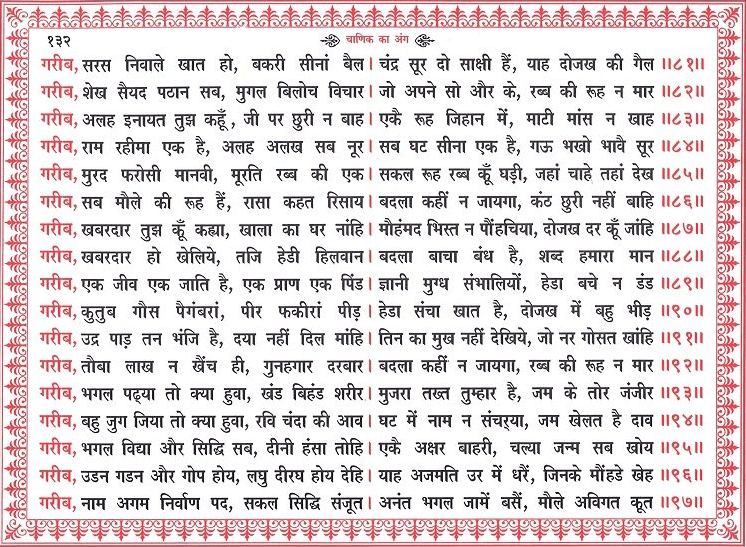 १३२ चाणिक का अंग
गरीब, सरस निवाले खात हो, बकरी सीनां बैल। चंद्र सूर दो साक्षी हैं, याह दोजख की गैल॥८१॥
गरीब, शेख सैयद पठान सब, मुगल बिलोच विचार। जो अपने सो और के, रब्ब की रूह न मार॥८२॥
गरीब, अलह इनायत तुझ कहूँ, जी पर छुरी न बाह। एकै रूह जिहान में, माटी मांस न खाह॥८३॥
गरीब, राम रहीमा एक है, अलह अलख सब नूर। सब घट सीना एक है, गऊ भखो भावै सूर॥८४॥
गरीब, मुरद फरोसी मानवी, मूरति रब्ब की एक। सकल रूह रब्ब कूँ घड़ी, जहां चाहे तहां देख॥८५॥
गरीब, सब मौले की रूह हैं, रासा कहत रिसाय। बदला कहीं न जायगा, कंठ छुरी नहीं बाहि॥८६॥
गरीब, खबरदार तुझ कूँ कह्या, खाला का घर नांहि। मौहंमद भिस्त न पौंहचिया, दोजख दर कूँ जांहि॥८७॥
गरीब, खबरदार हो खेलिये, तजि हेडी हिलवान। बदला बाचा बंध है, शब्द हमारा मान॥८८॥
गरीब, एक जीव एक जाति है, एक प्राण एक पिंड। ज्ञानी मुग्ध संभालियों, हेडा बचे न डंड॥८९॥
गरीब, कुतुब गौस पैगंबरां, पीर फकीरां पीड़। हेडा संचा खात है, दोजख में बहु भीड़॥९०॥
गरीब, उद्र पाड़ तन भंजि है, दया नहीं दिल मांहि। तिन का मुख नहीं देखिये, जो नर गोसत खांहि॥९१॥
गरीब, तौबा लाख न खैंच ही, गुनहगार दरबार। बदला कहीं न जायगा, रब्ब की रूह न मार॥९२॥
गरीब, भगल पढ्या तो क्या हुवा, खंड बिहंड शरीर। मुजरा तख्त तुम्हार है, जम के तोर जंजीर॥९३॥
गरीब, बहु जुग जिया तो क्या हुवा, रवि चंदा की आव। घट में नाम न संचर्‌या, जम खेलत है दाव॥९४॥
गरीब, भगल विद्या और सिद्धि सब, दीनी हंसा तोहि। एकै अक्षर बाहरी, चल्या जन्म सब खोय॥९५॥
गरीब, उडन गडन और गोप होय, लघु दीरघ होय देहि। याह अजमति उर में धरैं, जिनके मौंहडे खेह॥९६॥
गरीब, नाम अगम निर्वाण पद, सकल सिद्धि संजूत। अनंत भगल जामें बसैं, मौले अविगत कूत॥९७॥